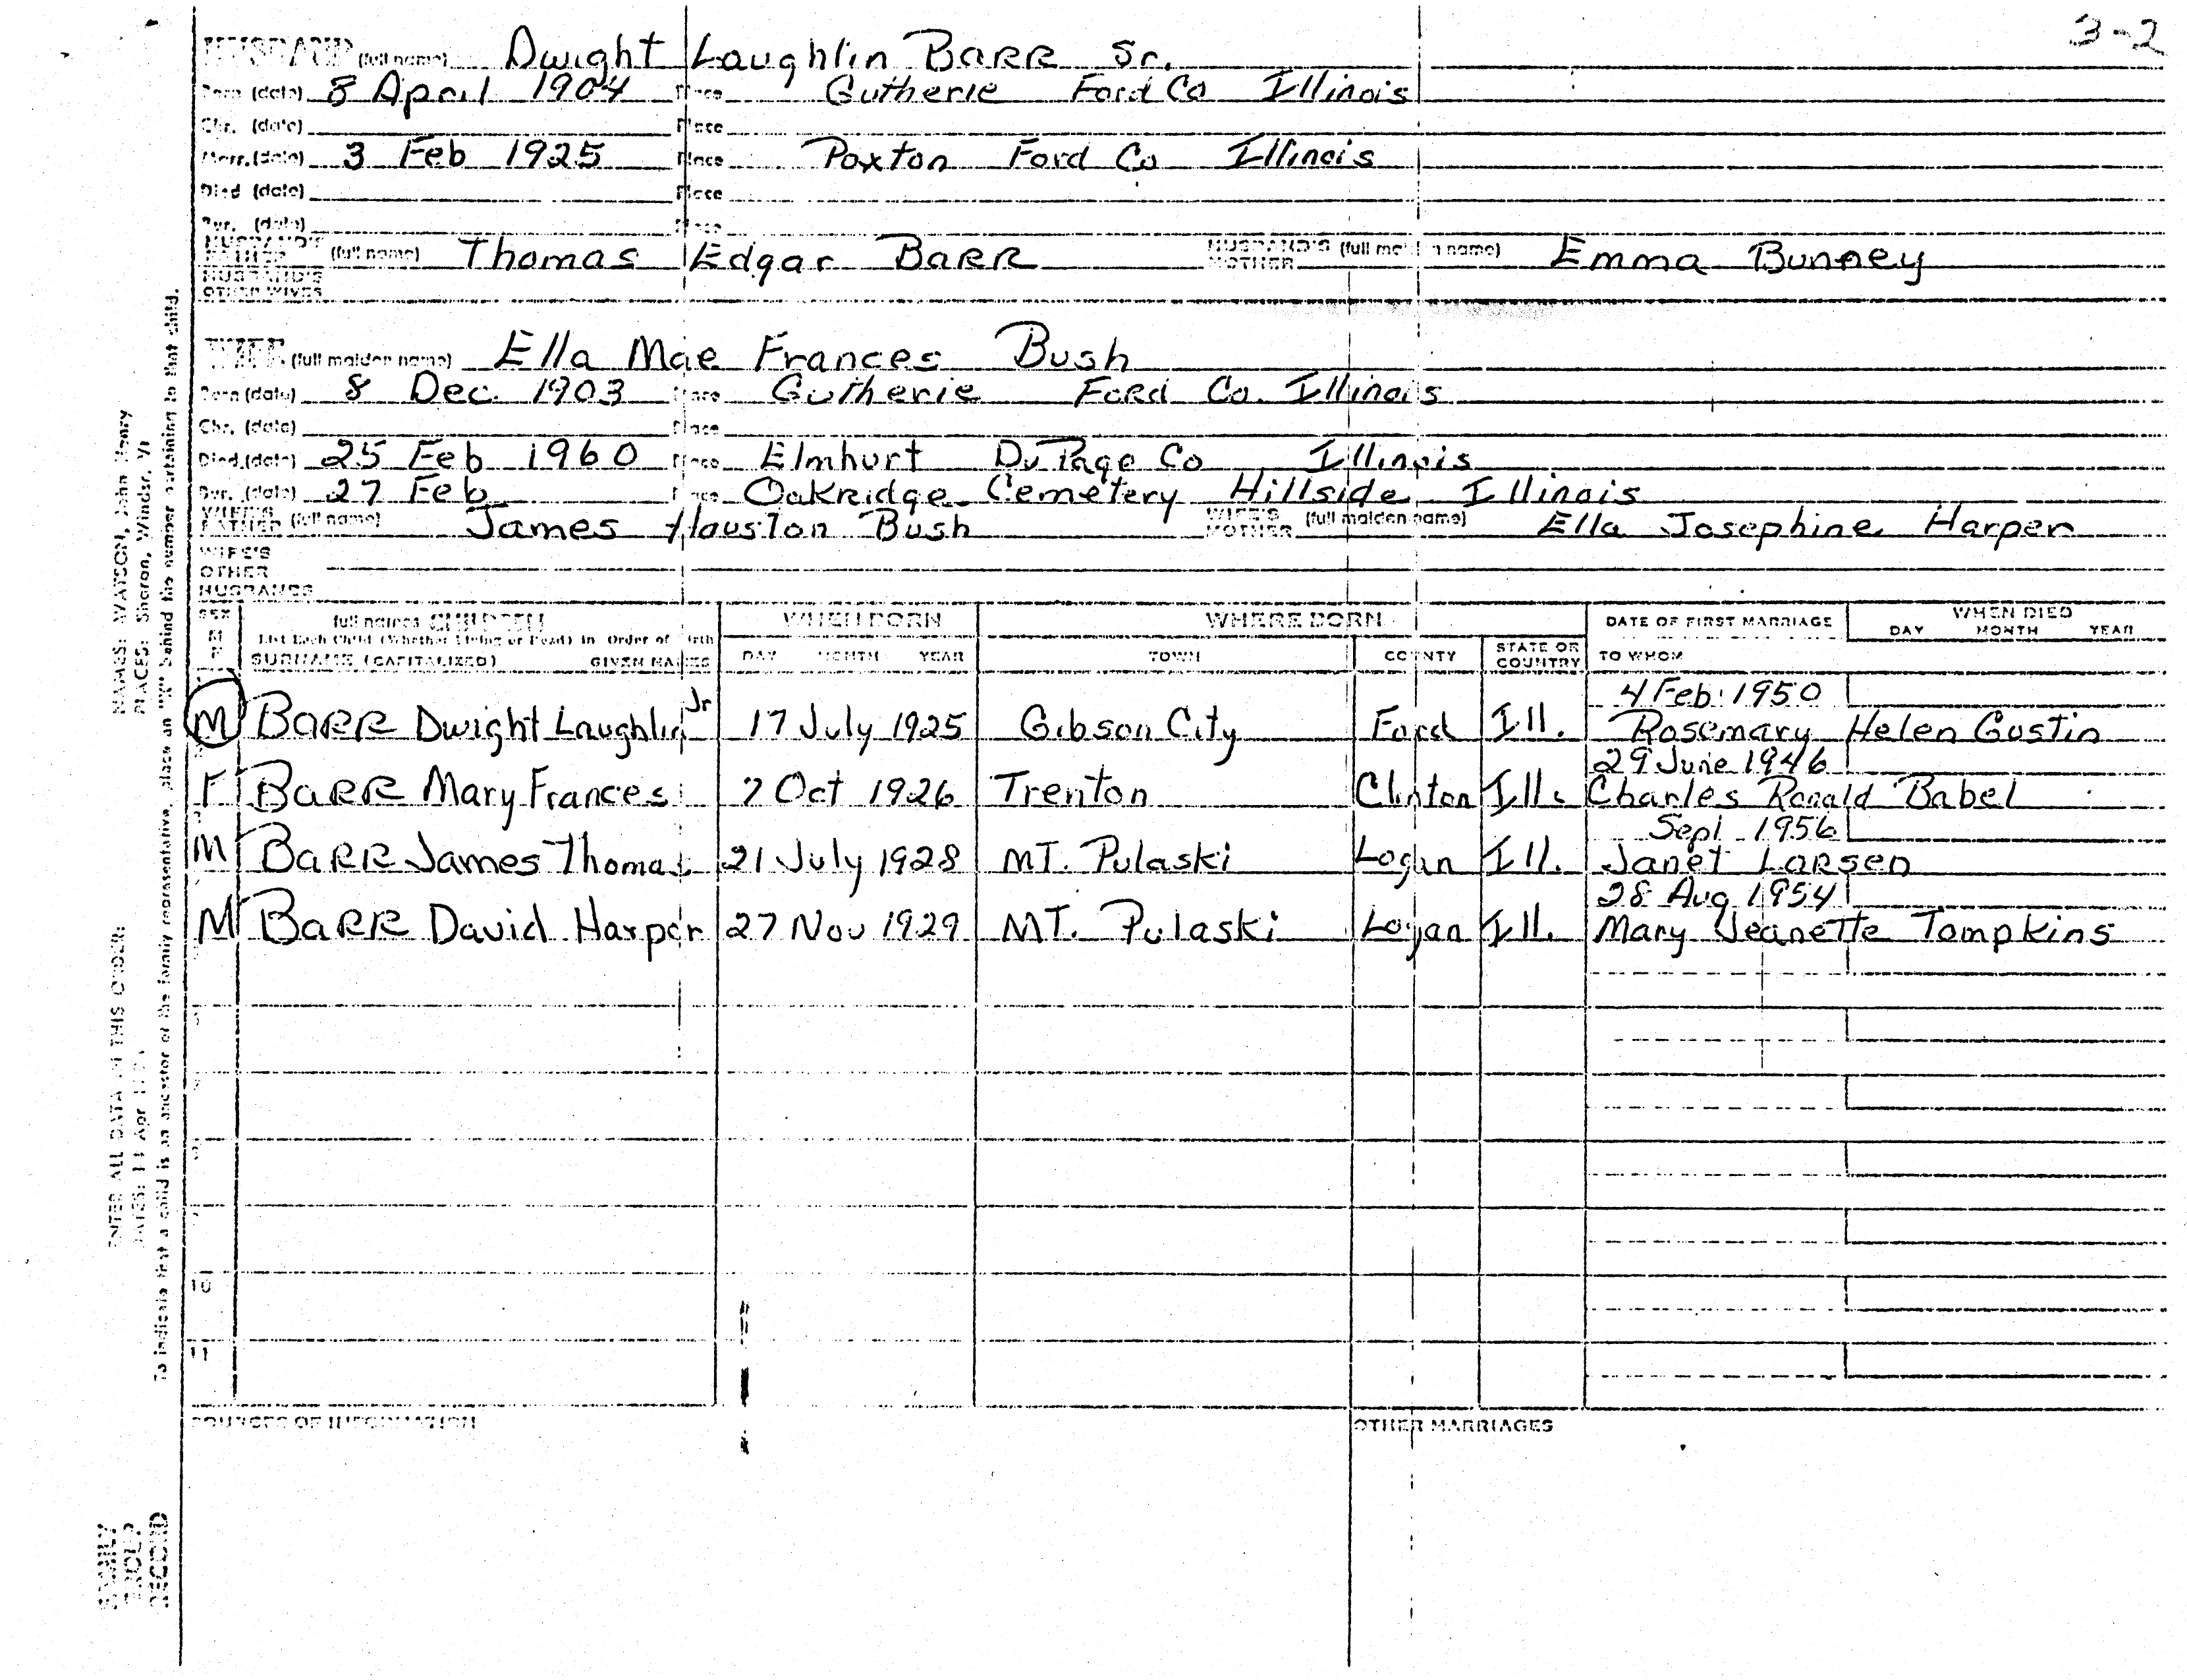 3-2
HUSBAND (full name) Dwight Laughlin BARR Sr.
Born (date) 8 April 1904 Place Gutherie Ford Co Illinois
Chr. (date) Place
Marr. (date) 3 Feb 1925 Place Paxton Ford Co Illinois
Died (date) Place
Bur. (date) Place
HUSBAND'S FATHER (full name) Thomas Edgar BARR HUSBAND'S MOTHER (full maiden name) Emma Bunney
HUSBAND'S OTHER WIVES
WIFE (full maiden name) Ella Mae Frances Bush
Born (date) 8 Dec. 1903 Place Gutherie Ford Co. Illinois
Chr. (date) Place
Died (date) 25 Feb 1960 Place Elmhurt DuPage Co Illinois
Bur. (date) 27 Feb Place Oakridge Cemetery Hillside Illinois
WIFE'S FATHER (full name) James Houston Bush WIFE'S MOTHER (full maiden name) Ella Josephine Harper
WIFE'S OTHER HUSBANDS
SEX M F full names CHILDREN WHEN BORN WHERE BORN DATE OF FIRST MARRIAGE WHEN DIED
List Each Child (Whether Living or Dead) in Order of Birth DAY MONTH YEAR
SURNAME (CAPITALIZED) GIVEN NAMES DAY MONTH YEAR TOWN COUNTY STATE OR COUNTRY TO WHOM
4 Feb 1950
M BARR Dwight Laughlin Jr 17 July 1925 Gibson City Ford Ill. Rosemary Helen Gustin
29 June 1946
F BARR Mary Frances 7 Oct 1926 Trenton Clinton Ill. Charles Ronald Babel
Sept 1956
M BARR James Thomas 21 July 1928 MT. Pulaski Logan Ill. Janet Larsen
28 Aug 1954
M BARR David Harper 27 Nov 1929 MT. Pulaski Logan Ill. Mary Jeanette Tompkins
10
11
SOURCES OF INFORMATION OTHER MARRIAGES
NAMES: WATSON, John Henry
PLACES: Sharon, Windsr, Vt
To indicate that a child is an ancestor of the family representative, place an "X" behind the number pertaining to that child.
ENTER ALL DATA IN THIS ORDER:
FAMILY GROUP RECORD